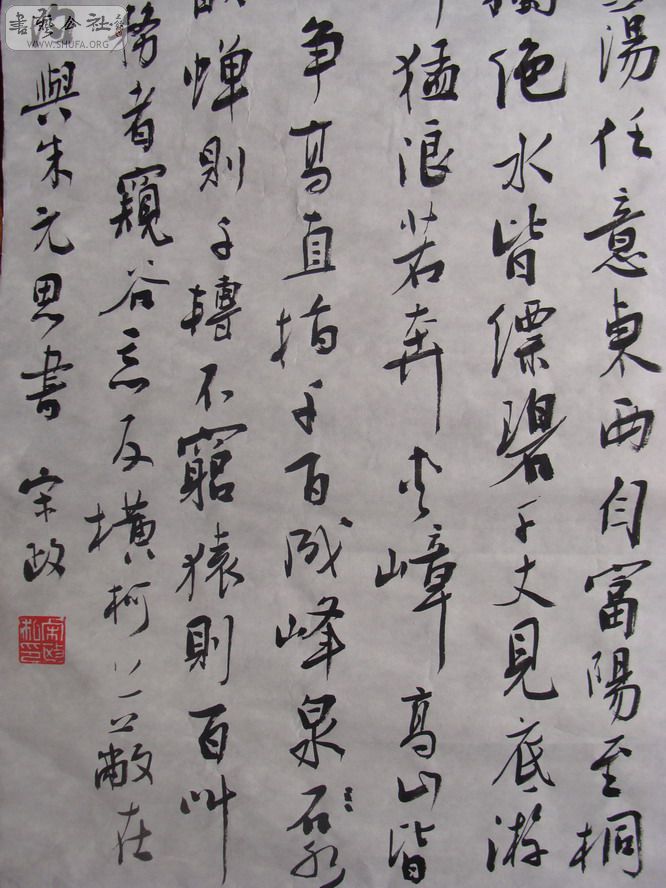 蕩任意東西自富陽至桐
絶水皆縹碧千丈見底游
猛浪若奔夾嶂高山皆
争高直指千百成峰泉石水
蟬則千轉不窮猿則百叫
務者窺谷忘反橫柯上蔽在
與朱元思書 宋政
宋政私印
書藝公社
WWW.SHUFA.ORG